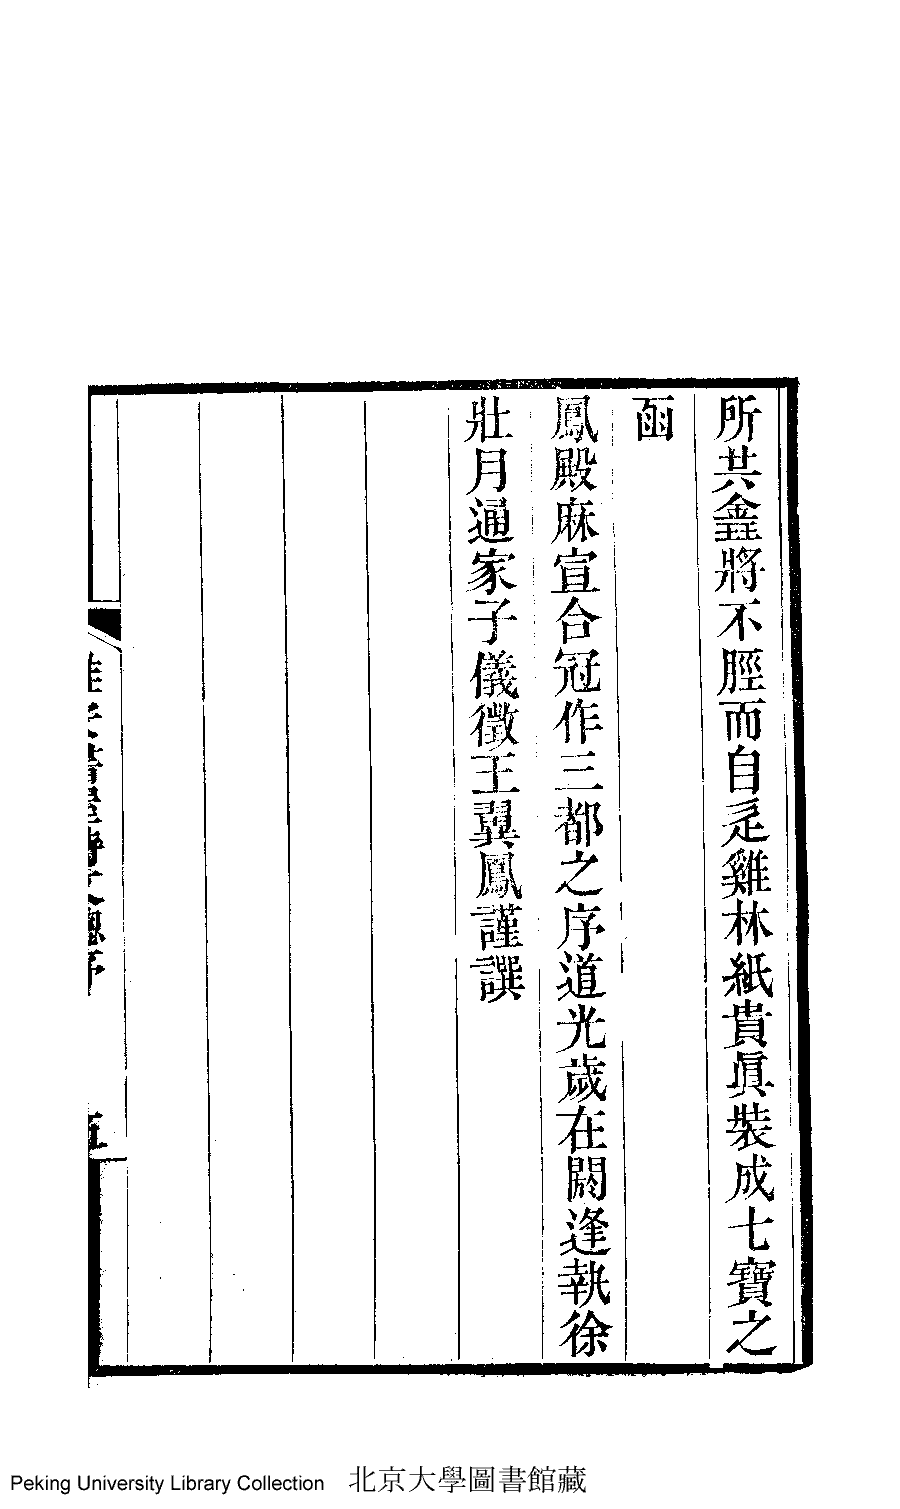 所共鍳將不脛而自走雞林紙貴眞裝成七寶之
函
鳳殿麻宣合冠作三都之序道光歲在閼逢執徐
壯月通家子儀徵王翼鳳謹譔
五
Peking University Library Collection 北京大學圖書館藏